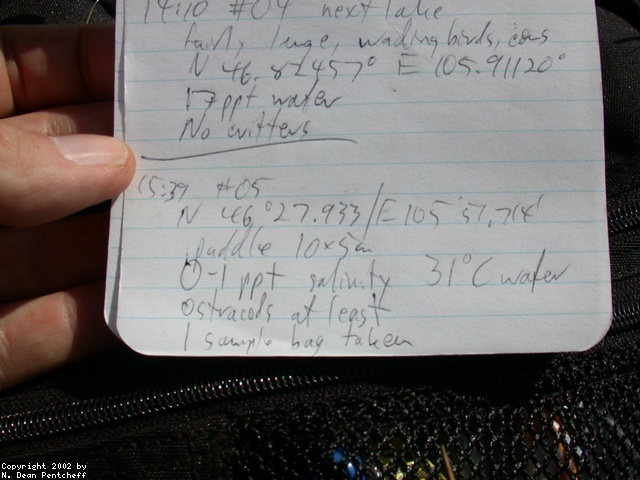 14:10 #04 next lake
fairly large, wading birds, cows
N 46.82457° E 105.91120°
17 ppt water
No critters
15:39 #05
N 46°27.933/E 105°57.714'
puddle 10x5m
0-1 ppt salinity 31°C water
ostracods at least
1 sample bag taken
Copyright 2002 by
N. Dean Pentcheff